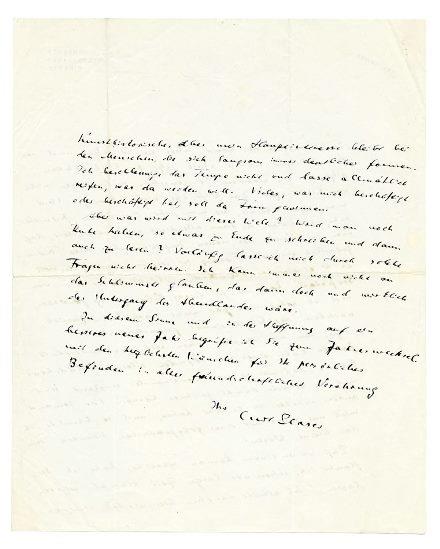 Kunsthistorisches. Aber mein Hauptinteresse bleibt bei
den Menschen, die sich langsam immer deutlicher formen.
Ich beschleunige das Tempo nicht und lasse allmählich
reifen, was da werden will. Vieles, was mich beschäftigt
oder beschäftigt hat, soll da Form gewinnen.
Aber was wird mit dieser Welt? Wird man noch
Ruhe haben, so etwas zu Ende zu schreiben und dann
auch zu lesen? Vorläufig lasse ich mich durch solche
Fragen nicht beirren. Ich kann immer noch nicht an
das Schlimmste glauben, das dann doch und wirklich
der Untergang des Abendlandes wäre.
In diesem Sinne und in der Hoffnung auf ein
besseres neues Jahr begrüße ich Sie zum Jahreswechsel
mit den herzlichsten Wünschen für Ihr persönliches
Befinden in aller freundschaftlichen Verehrung
Ihr
Curt